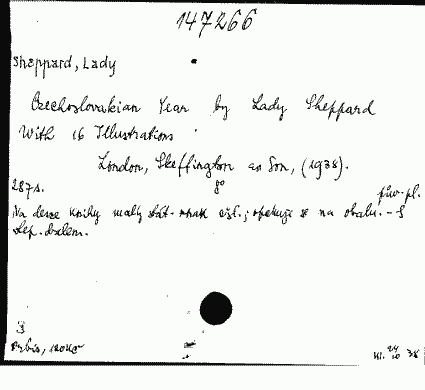 147266
Sheppard, Lady
Czechoslovakian Year by Lady Sheppard
With 16 Illustrations
London, Skeffington an Son, (1938).
287 s. 8° pův. pl.
Na desce knihy malý stát. znak čsl.; opakuje se na obalu. - S
lep. obalem.
3
Orbis, 
24
10 38